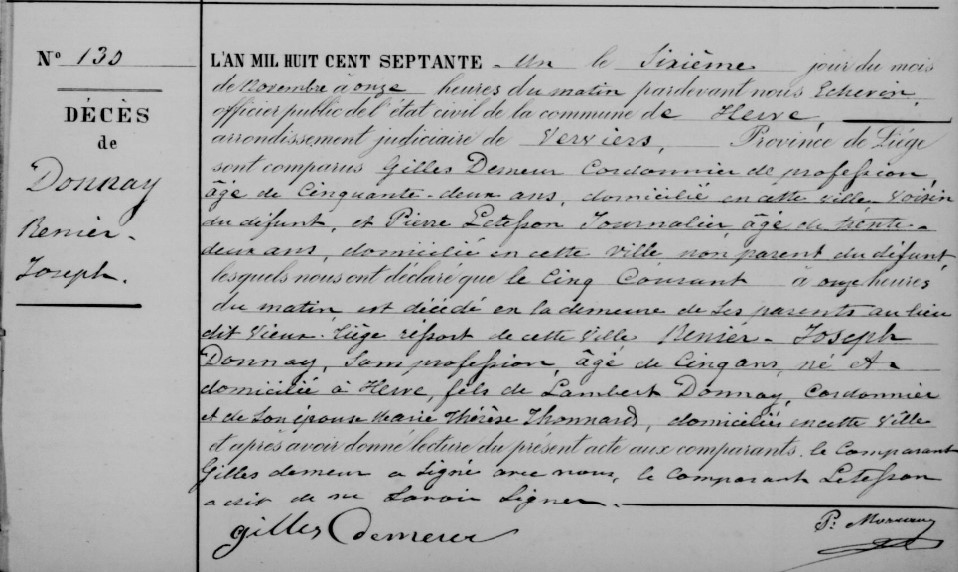 N° 130
DÉCÈS
de
Donnay
Renier-
Joseph.
L'AN MIL HUIT CENT SEPTANTE - Un le Sixième jour du mois
de Novembre à onze heures du matin pardevant nous Echevin,
officier public de l'état civil de la commune de Herve,
arrondissement judiciaire de Verviers, Province de Liége
sont comparus Gilles Demeur Cordonnier de profession,
âgé de Cinquante-deux ans, domicilié en cette ville Voisin
du défunt, et Pierre Letesson Journalier, âgé de trente-
deux ans, domicilié en cette Ville, non parent du défunt,
lesquels nous ont déclaré que le Cinq Courant à onze heures
du matin est décédé en la demeure de Ses parents au lieu
dit Vieux-Liège résort de cette Ville Renier-Joseph
Donnay, Sans profession, âgé de Cinq ans, né et
domicilié à Herve, fils de Lambert Donnay, Cordonnier
et de Son épouse Marie Thérèse Thonnard, domiciliés en cette Ville
et après avoir donné lecture du présent acte aux comparants, le Comparant
Gilles demeur a Signé avec nous, le Comparant Letesson
a dit de ne Savoir Signer.
gilles Demeur
P: